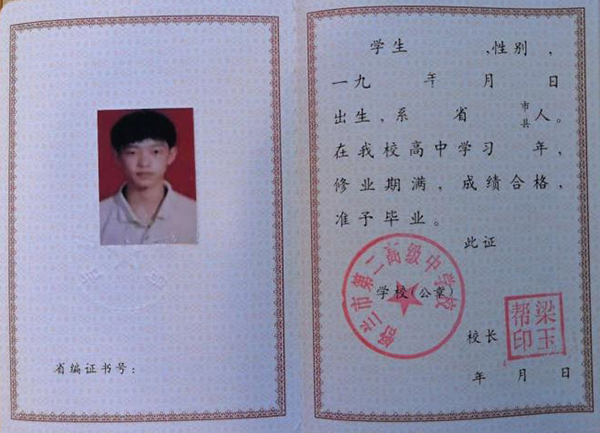 省编证书号：
学生 、性别 ，
一九 年 月 日
出生，系 省 市县 人。
在我校高中学习 年，
修业期满，成绩合格，
准予毕业。
此证
兴市第二高级中学校
学校（公章）
梁玉帮印
校长
年 月 日